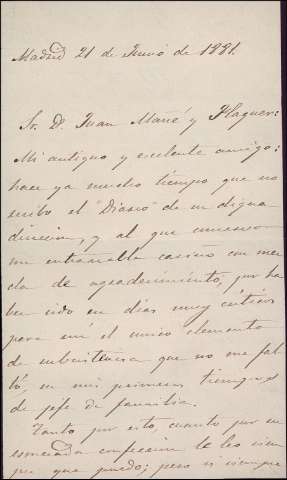 Madrid 21 de Junio de 1881.
Sr. D. Juan Mañé y Flaquer:
Mi antiguo y escelente amigo:
hace ya mucho tiempo que no
recibo el "Diario" de su digna
direccion, y al que conservo
un entrañable cariño con mez
cla de agradecimiento, por ha
ber sido en dias muy críticos
para mí el unico elemento
de subsistencia que no me fal
tó, en mis primeros tiempos
de jefe de familia.
Tanto por esto, cuanto por su
esmerada confeccion le leo siem
pre que puedo; pero si siempre